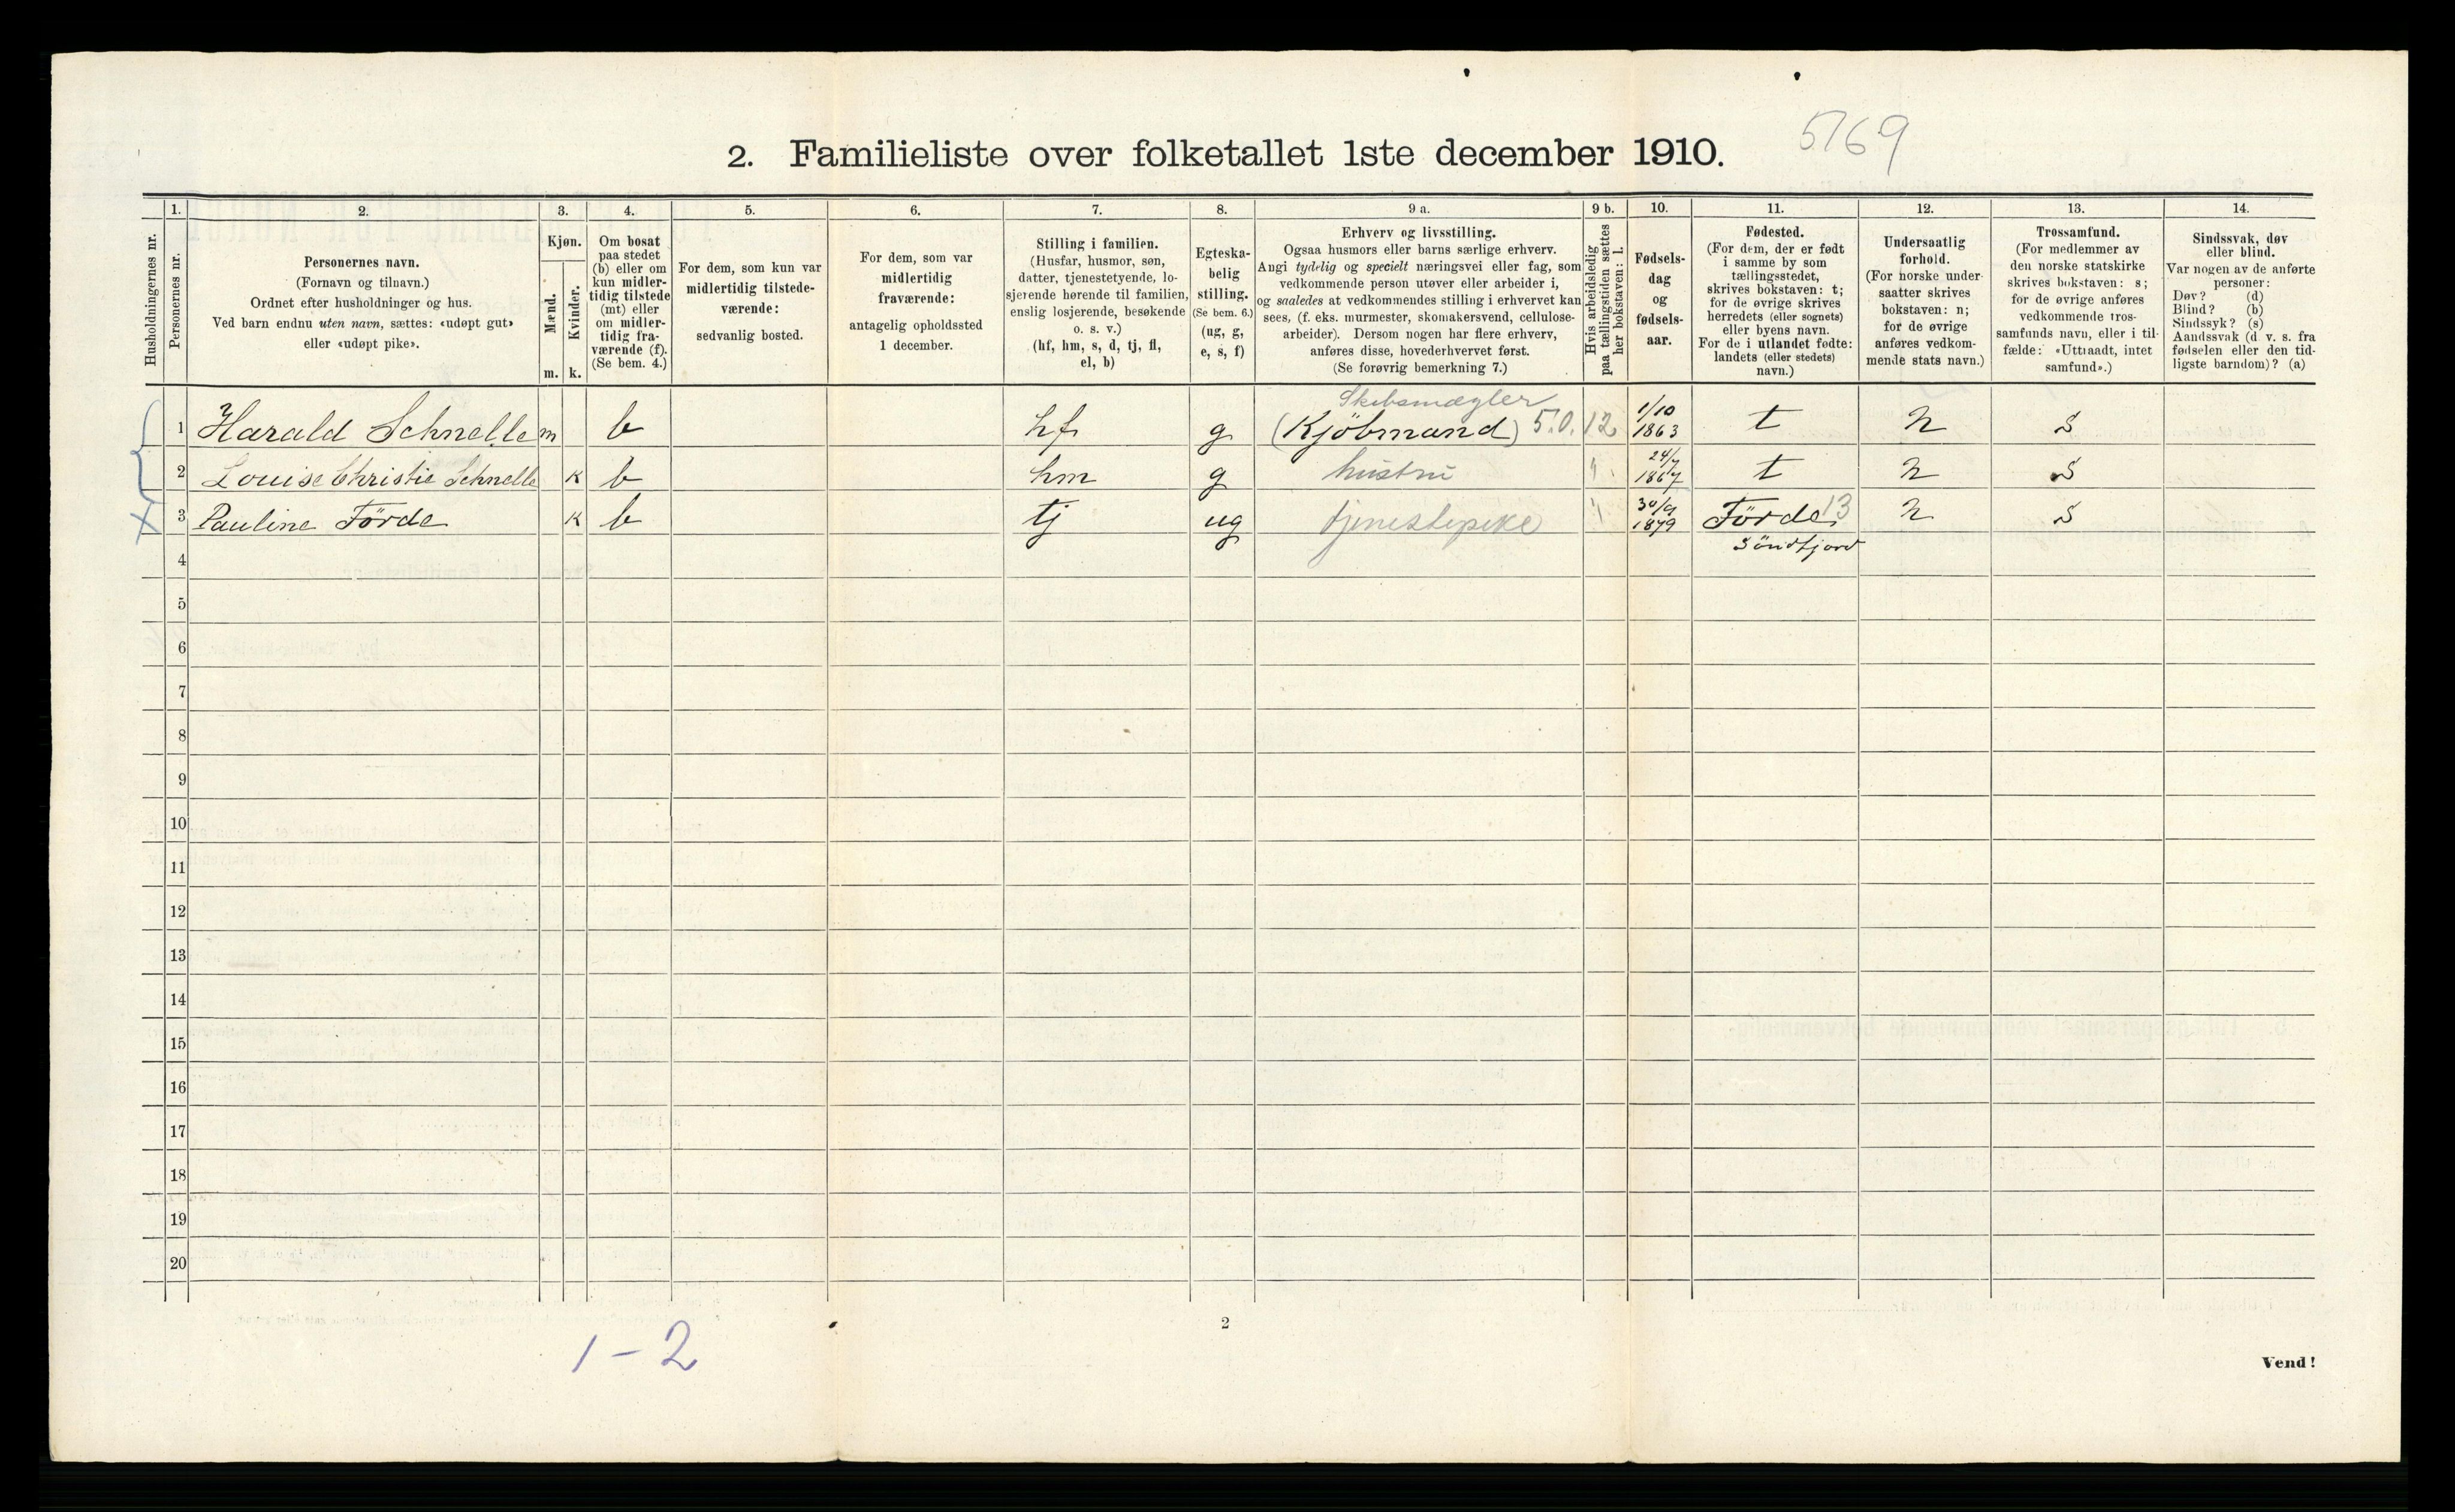 2. Familieliste over folketallet 1ste december 1910. 5769
1. 2. 3. 4. 5. 6. 7. 8. 9 a. 9 b. 10. 11. 12. 13. 14.
Husholdningernes nr.
Personernes nr.
Personernes navn.
(Fornavn og tilnavn.)
Ordnet efter husholdninger og hus.
Ved barn endnu uten navn, sættes: «udøpt gut»
eller «udøpt pike».
Kjøn.
Mænd.
Kvinder.
m. k.
Om bosat
paa stedet
(b) eller om
kun midler-
tidig tilstede
(mt) eller
om midler-
tidig fra-
værende (f).
(Se bem. 4.)
For dem, som kun var
midlertidig tilstede-
værende:
sedvanlig bosted.
For dem, som var
midlertidig
fraværende:
antagelig opholdssted
1 december.
Stilling i familien.
(Husfar, husmor, søn,
datter, tjenestetyende, lo-
sjerende hørende til familien,
enslig losjerende, besøkende
o. s. v.)
(hf, hm, s, d, tj, fl,
el, b)
Egteska-
belig
stilling.
(Se bem. 6.)
(ug, g,
e, s, f)
Erhverv og livsstilling.
Ogsaa husmors eller barns særlige erhverv.
Angi tydelig og specielt næringsvei eller fag, som
vedkommende person utøver eller arbeider i,
og saaledes at vedkommendes stilling i erhvervet kan
sees, (f. eks. murmester, skomakersvend, cellulose-
arbeider). Dersom nogen har flere erhverv,
anføres disse, hovederhvervet først.
(Se forøvrig bemerkning 7.)
Hvis arbeidsledig
paa tællingstiden sættes
her bokstaven: l.
Fødsels-
dag
og
fødsels-
aar.
Fødested.
(For dem, der er født
i samme by som
tællingsstedet,
skrives bokstaven: t;
for de øvrige skrives
herredets (eller sognets)
eller byens navn.
For de i utlandet fødte:
landets (eller stedets)
navn.)
Undersaatlig
forhold.
(For norske under-
saatter skrives
bokstaven: n;
for de øvrige
anføres vedkom-
mende stats navn.)
Trossamfund.
(For medlemmer av
den norske statskirke
skrives bokstaven: s;
for de øvrige anføres
vedkommende tros-
samfunds navn, eller i til-
fælde: «Uttraadt, intet
samfund».)
Sindssvak, døv
eller blind.
Var nogen av de anførte
personer:
Døv? (d)
Blind? (b)
Sindssyk? (s)
Aandssvak (d. v. s. fra
fødselen eller den tid-
ligste barndom)? (a)
Skibsmægler
1 Harald Schnelle m b hf g (Kjöbmand) 5.0.12 1/10 1863 t n s
2 Louise Christie Schnelle k b hm g hustru 24/7 1867 t n s
3 Pauline Förde k b tj ug tjenestepike 30/9 1879 Förde 13 n s
Söndfjord
4
5
6
7
8
9
10
11
12
13
14
15
16
17
18
19
20
1 - 2
2
Vend!